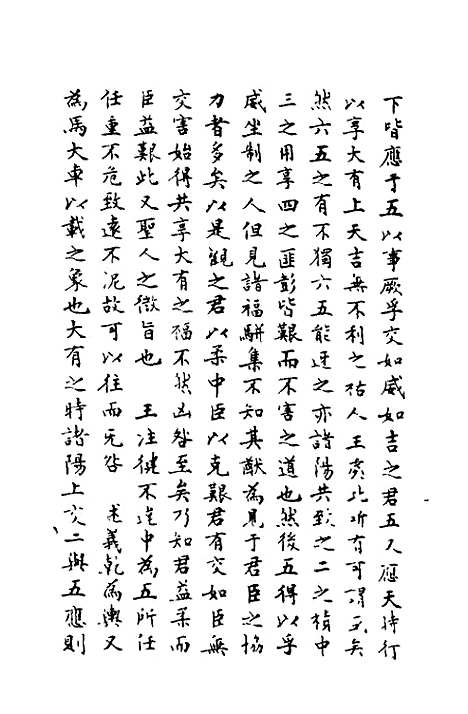 下皆應于五以事厥孚交如威如吉之君五又應天時行
以享大有上天吉無不利之祐人王處此所有可謂至矣
然六五之有不獨六五能逹之亦諸陽共致之二之積中
三之用享四之匪彭皆艱而不害之道也然後五得以孚
威坐制之人但見諸福駢集不知其猷為見于君臣之協
力者多矣以是觀之君以柔中臣以克艱君有交如臣無
交害始得共享大有之福不然凶咎至矣乃知君益柔而
臣益艱此又聖人之微旨也　王注健不違中為五所任
任重不危致遠不泥故可以往而无咎　述義乾為輿又
為馬大車以載之象也大有之時諸陽上交二與五應則